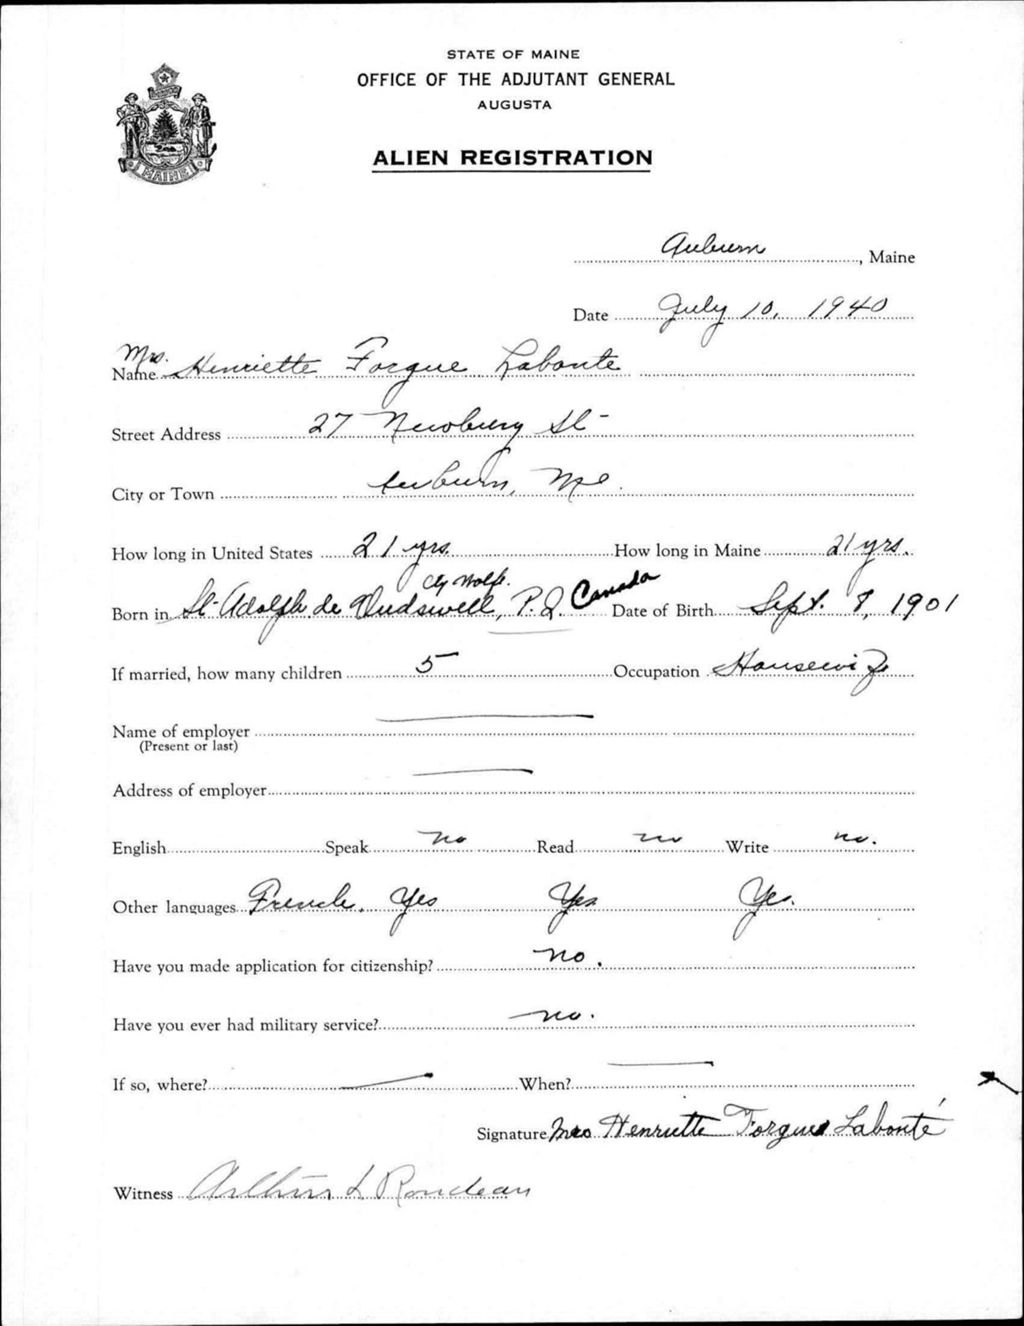 STATE OF MAINE
OFFICE OF THE ADJUTANT GENERAL
AUGUSTA
ALIEN REGISTRATION
MAINE
Auburn, Maine
Date July 10, 1940
Mrs.
Name Henriette Forgue Labonte
Street Address 27 Newbury St
City or Town Auburn, Me.
How long in United States 21 yrs. How long in Maine 21 yrs.
Cty Wolfe.
Born in St-Adolph de Dudswell, P.Q. Canada Date of Birth Sept. 8, 1901
If married, how many children 5 Occupation Housewife
Name of employer
(Present or last)
Address of employer
English Speak no Read no Write no.
Other languages French. Yes Yes Yes.
Have you made application for citizenship? no.
Have you ever had military service? no.
If so, where? When?
Signature Mrs Henriette Forgues Labonté
Witness Arthur L Rondeau